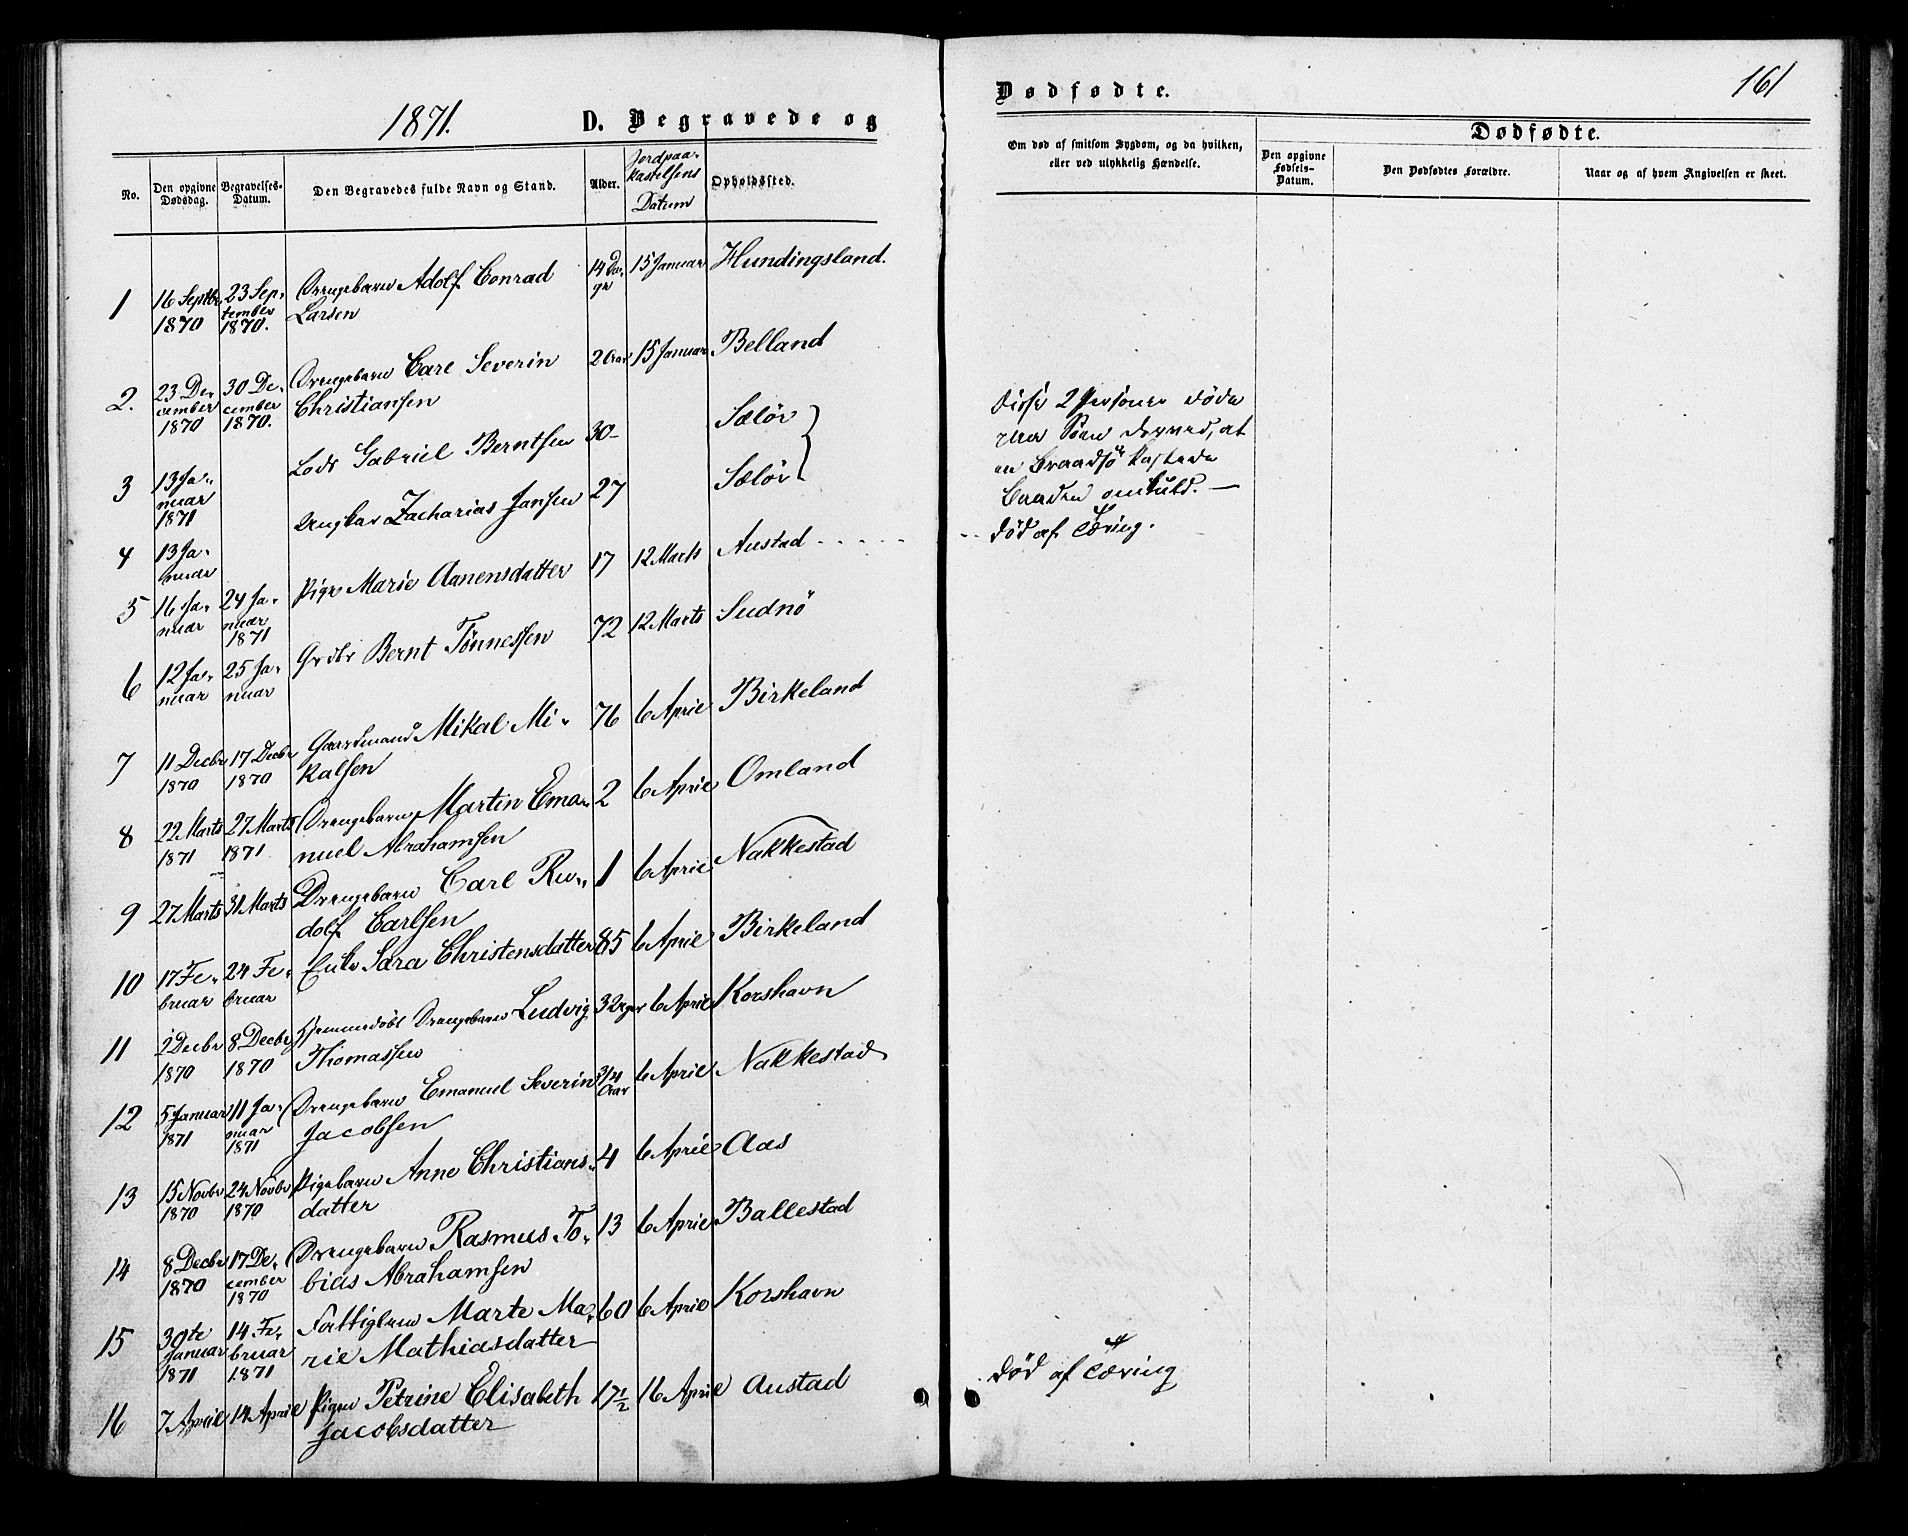 1871.
D. Begravede og
No.
Den opgivne Dødsdag.
Begravelses-Datum.
Den Begravedes fulde Navn og Stand.
Alder.
Jordpaa-kastelsens Datum
Opholdssted.
1 16 Septbr 1870 23 September 1870. Drengebarn Adolf Conrad Larsen 14 Dage 15 Januar Hundingsland.
2. 23 December 1870 30 December 1870. Drengebarn Carl Severin Christiansen 2 Aar 15 Januar Belland
3 13 Januar 1871 Lods Gabriel Berntsen 30 Sælør
4 13 Januar Ungkar Zacharias Jansen 27 Sælør
5 16 Januar 24 Januar 1871 Pige Marie Aanensdatter 17 12 Marts Austad
6 12 Januar 25 Januar Bernt Tønnessen 72 12 Marts Sudnö
7 11 Decbr 1870 17 Decbr 1870 Gaardmand Mikal Mikalsen 76 6 April Birkeland
8 22 Marts 1871 27 Marts 1871 Drengebarn Martin Emanuel Abrahamsen 2 6 April Omland
9 27 Marts 31 Marts Drengebarn Carl Rudolf Carlsen 1 6 April Nakkestad
10 17 Februar 24 Februar Enke Sara Christensdatter 85 6 April Birkeland
11 2 Decbr 1870 8 Decbr 1870 Hjemmedøbt Drengebarn Ludvig Thomassen 3 Uger 6 April Korshavn
12 5 Januar 1871 11 Januar 1871 Drengebarn Emanuel Severin Jacobsen 3/4 Aar 6 April Nakkestad
13 15 Novbr 1870 24 Novbr 1870 Pigebarn Anne Christiansdatter 4 6 April Aas
14 8 Decbr 1870 17 December 1870 Drengebarn Rasmus Tobias Abrahamsen 13 6 April Ballestad
15 30te Januar 1871 14 Februar 1871 Fattiglem Marte Marie Mathiasdatter 60 6 April Korshavn
16 7 April 14 April Pigen Petrine Elisabeth Jacobsdatter 17 1/2 16 April Austad
Dødfødte.
161
Om død af smitsom Sygdom, og da hvilken,
eller ved ulykkelig Hændelse.
Dødfødte.
Den opgivne Fødsels-Datum.
Den Dødfødtes Forældre.
Naar og af hvem Angivelsen er skeet.
Disse 2 Personer døde
paa Søen derved, at
en Braadsö kastede
Baaden omkuld. —
død af Tæring.
død af Tæring